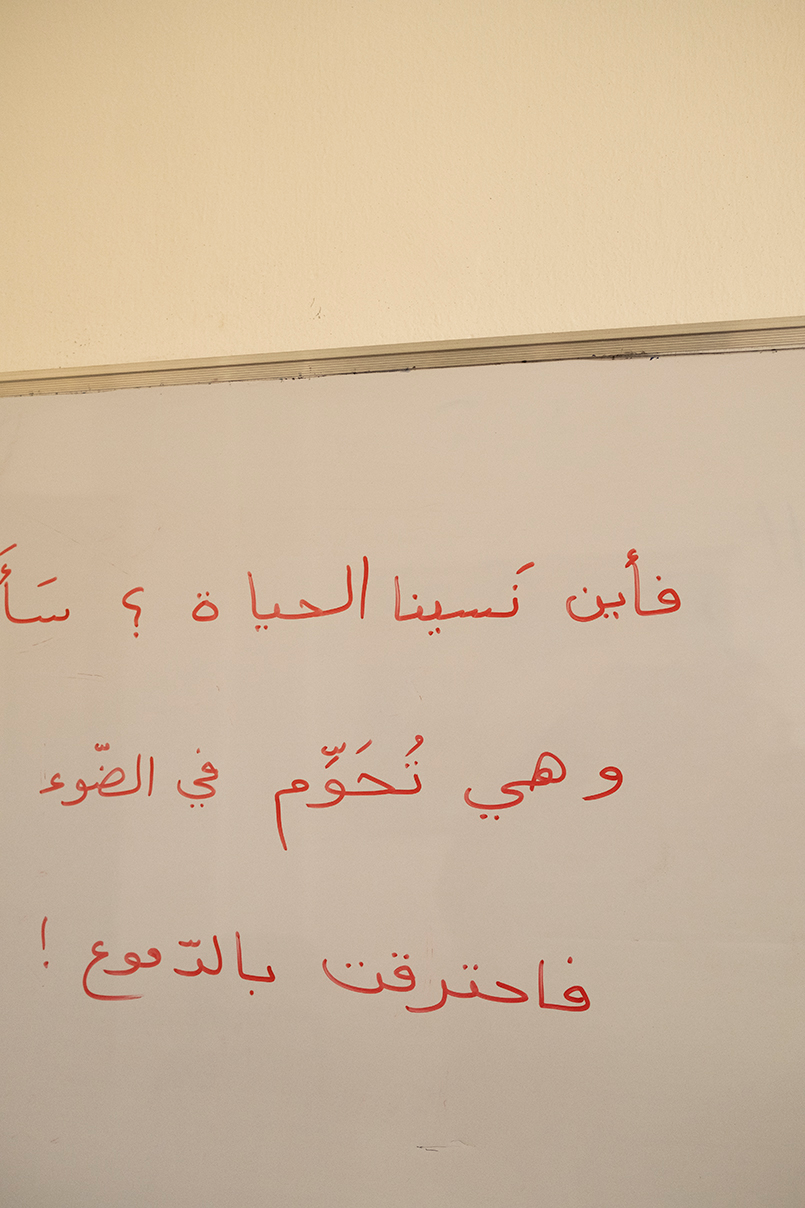 فأين نَسينا الحياة ؟ سَأَ
وهي تُحَوِّم في الضّوء
فاحترقت بالدّموع !